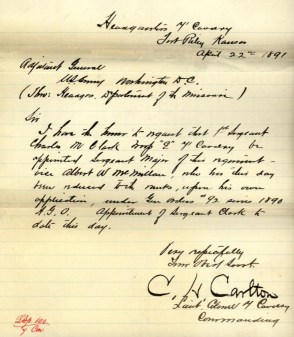 Headquarters 7" Cavalry
Fort Riley Kansas
April 22nd 1891
Adjutant General
U.S. Army Washington D.C.
(Thro: Headqrs. Department of the Missouri)
Sir
I have the honor to request that 1st Sergeant
Charles M Clark Troop "E" 7" Cavalry be
appointed Sergeant Major of this regiment
vice Albert W McMillan, who has this day
been reduced to the ranks, upon his own
application, under Gen Orders 92 series 1890
A.G.O. Appointment of Sergeant Clark to
date this day.
Very respectfully
Your Obdt Servt
C. H. Carlton
Lieut Colonel 7" Cavalry
Commanding
7 Cav